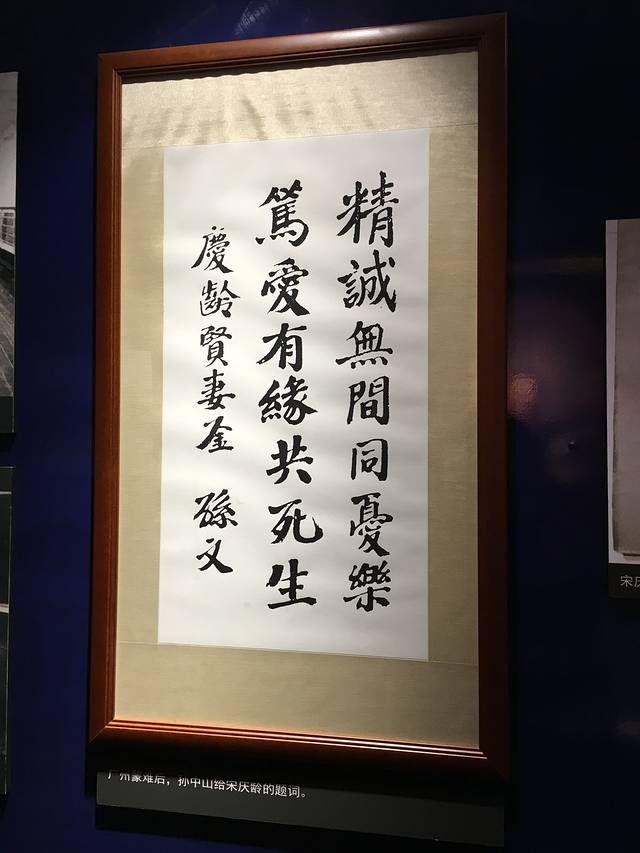 精誠無間同憂樂
篤愛有緣共死生
慶齡賢妻鉴 孫文
广州蒙难后，孙中山给宋庆龄的题词。
宋庆